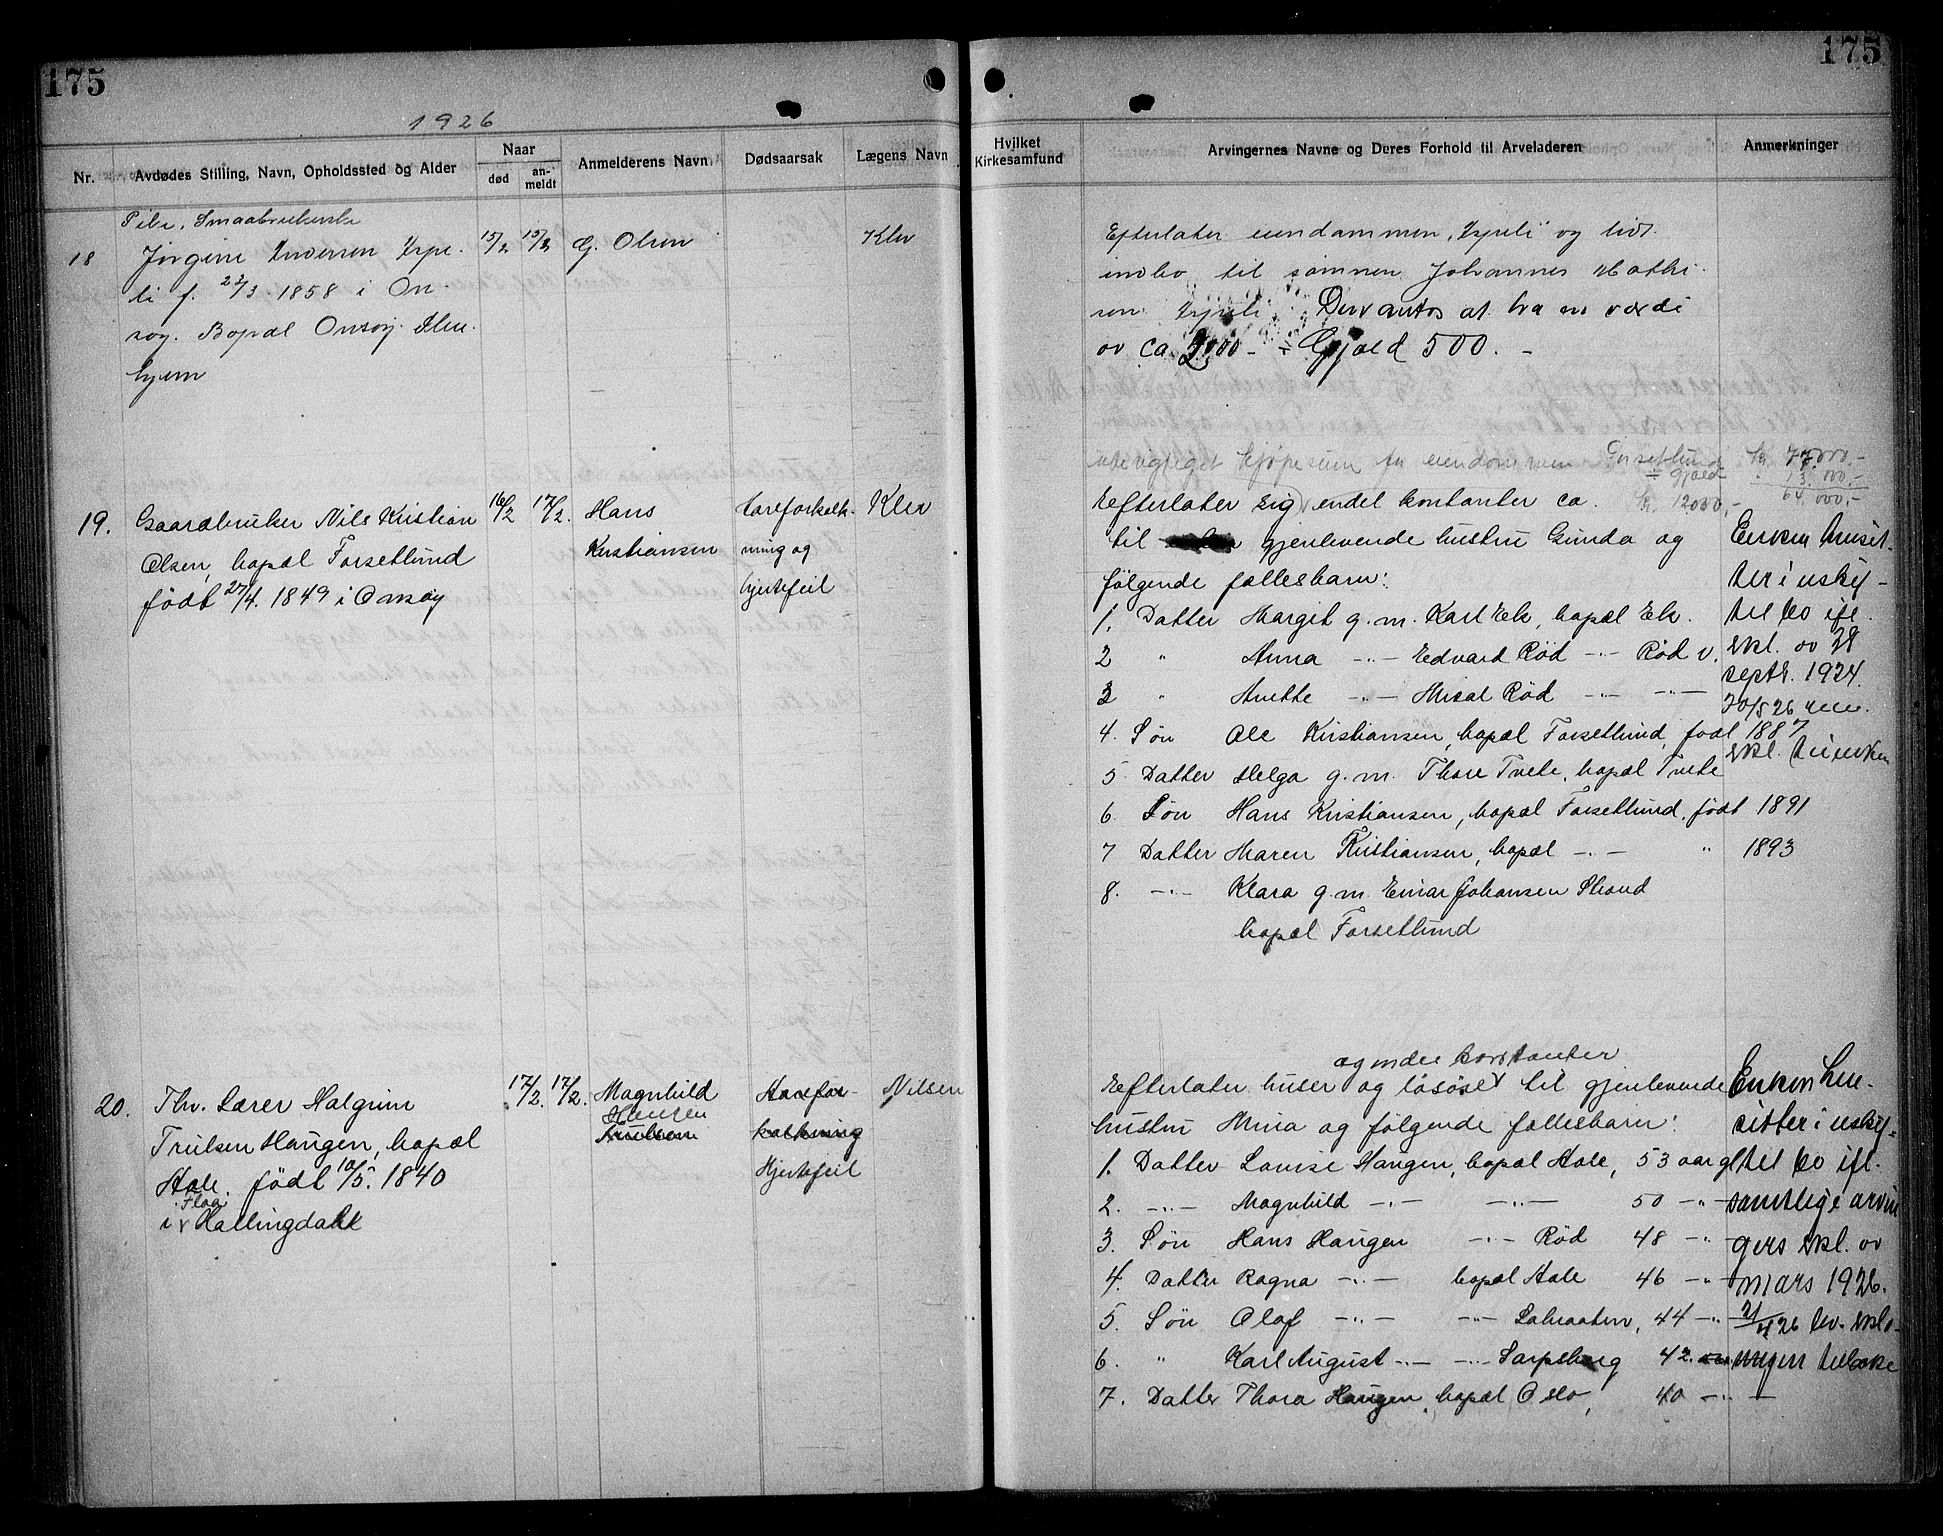 175
175
1926
Nr.
Avdødes Stilling, Navn, Opholdssted og Alder
Naar
død
an-
meldt
Anmelderens Navn
Dødsaarsak
Lægens Navn
Hvilket
Kirkesamfund
Arvingernes Navne og Deres Forhold til Arveladeren
Anmerkninger
18
Smaabrukerske
Jørgine
li f. 27/3 1858 i On-
søy. Bopæl Onsøy
hjem
15/2
15/2
G. Olsen
Klev
Efterlater eiendommen og
indbo til sønnen Johannes Mathi-
sen Derv antas at ha en værdi
av ca 2000 - ÷ Gjæld 500. -
19.
Gaardbruker Nils Kristian
Olsen, bopæl Forsetlund
født 27/4. 1849 i Onsøy
16/2
17/2.
Hans
Kristiansen
Aareforkalk-
ning og
hjertefeil
Klev
kjøpesum for eiendommen Forsetlund kr 77000.-
÷ Gjæld 13.000,-
64.000,-
Efterlater sig endel kontanter ca. kr. 12000,-
til gjenlevende hustru Gunda og
følgende fællesbarn:
1. Datter Margit g. m. Karl Ek, bopæl Ek.
2 " Anna -"- Edvard Rød -"- Rød v.
3 " Anette -"- Misal Rød -"- -"-
4. Søn Ole Kristiansen, bopæl Forsetlund, født 1887
5. Datter Helga g. m. Thore Tvete, bopæl Tvete
6. Søn Hans Kristiansen, bopæl Forsetlund, født 1891
7 Datter Maren Kristiansen, bopæl -"- " 1893
8. -"- Klara g. m. Einar Johansen Strand
bopæl Forsetlund
Enken hensit-
ter i uskif-
tet bo ifl.
skl. av 28
septr. 1924.
20/5 26
skl. til enken
20.
Fhv. Lærer Halgrim
Trulsen Haugen, bopæl
Hole. født 10/5. 1840
Flaa
i Hallingdal
17/2.
17/2.
Magnhild
Haugen
Trulsen
Aarefor-
kalkning
Hjertefeil
Nilsen
og endel kontanter
Efterlater huser og løsøre til gjenlevende
hustru Mina og følgende fællesbarn:
1. Datter Lovise Haugen, bopæl Hole, 53 aar gl
2. -"- Magnhild -"- -"- 50 -"-
3. Søn Hans Haugen -"- Rød 48 -"-
4. Datter Ragna -"- bopæl Hole 46 -"-
5. Søn Olaf -"- -"- 44 -"-
6. " Karl August -"- -"- Sarpsborg 42.
7. Datter Thora Haugen, bopæl Oslo, 40 -"-
Enken hen-
sitter i uskif-
tet bo ifl.
samtlige arvin
gers skl. av
mars 1926.
21/4 26